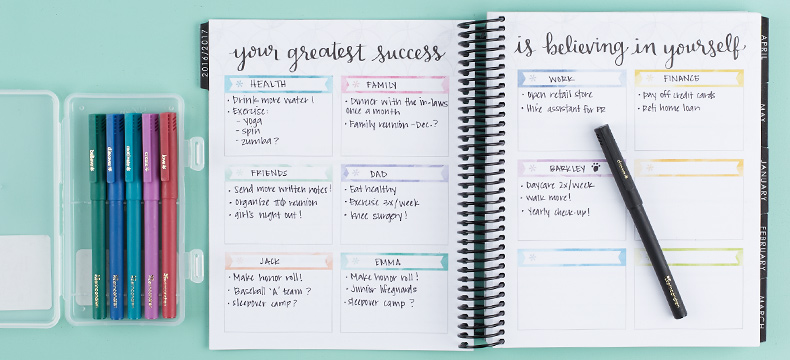 2016/2017
your greatest success
HEALTH
• Drink more water!
• Exercise:
- yoga
- spin
- zumba?
FAMILY
• Dinner with the in-laws
once a month
• Family reunion - Dec.?
FRIENDS
• Send more written notes!
• organize ΠΦ reunion
• girls night out!
DAD
• Eat healthy
• Exercise 2x/week
• knee surgery!
JACK
• Make honor roll!
• Baseball 'A' team?
• sleepover camp?
EMMA
• Make honor roll!
• Junior lifeguards
• sleepover camp?
is believing in yourself
WORK
• open retail store
• Hire assistant for PR
FINANCE
• pay off credit cards
• Refi home loan
BARKLEY
• Daycare 2x/week
• walk more!
• Yearly check-up!
APRIL
MAY
JANUARY
FEBRUARY
MARCH
believe
discover
create
love